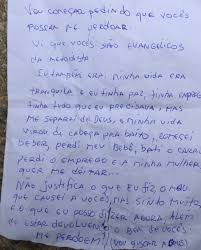 VOU COMEÇAR PEDINDO QUE VOCÊS
POSSAM ME PERDOAR.
VI QUE VOCÊS SÃO EVANGÉLICOS
DA METODISTA.
EU TAMBÉM ERA, MINHA VIDA ERA
TRANQUILA E EU TINHA PAZ, TINHA EMPREGO
TINHA TUDO QUE EU PRECISAVA, MAS
ME SEPAREI DE DEUS, E MINHA VIDA
VIROU DE CABEÇA PRA BAIXO, COMECEI
BEBER, PERDI MEU BEBÊ, BATI O CARRO
PERDI O EMPREGO E A MINHA MULHER
QUER ME DEIXAR...
NÃO JUSTIFICA O QUE EU FIZ, O
QUE CAUSEI A VOCÊS, MAS SINTO MUITO,
É O QUE EU POSSO DIZER AGORA ALÉM
DE ESTAR DEVOLVENDO O
ME PERDOEM